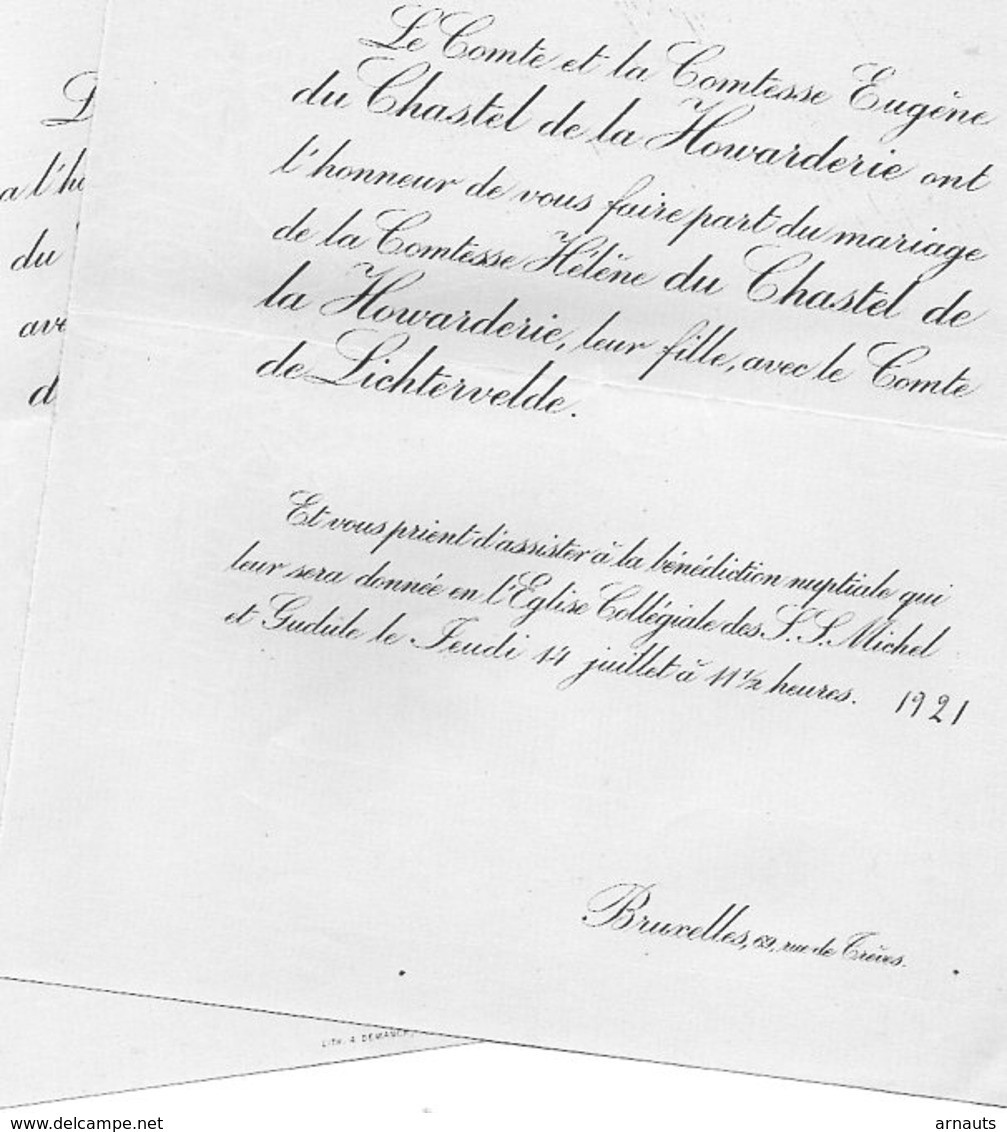 Le Comte et la Comtesse Eugène
du Chastel de la Howarderie ont
l'honneur de vous faire part du mariage
de la Comtesse Hélène du Chastel de
la Howarderie, leur fille, avec le Comte
de Lichtervelde.
Et vous prient d'assister à la bénédiction nuptiale qui
leur sera donnée en l'Eglise Collégiale des S.S. Michel
et Gudule le Jeudi 14 juillet à 11 1/2 heures. 1921
Bruxelles, 69, rue de Trèves.
a l'h
du
ave
d
LITH. A.
delcampe.net
arnauts